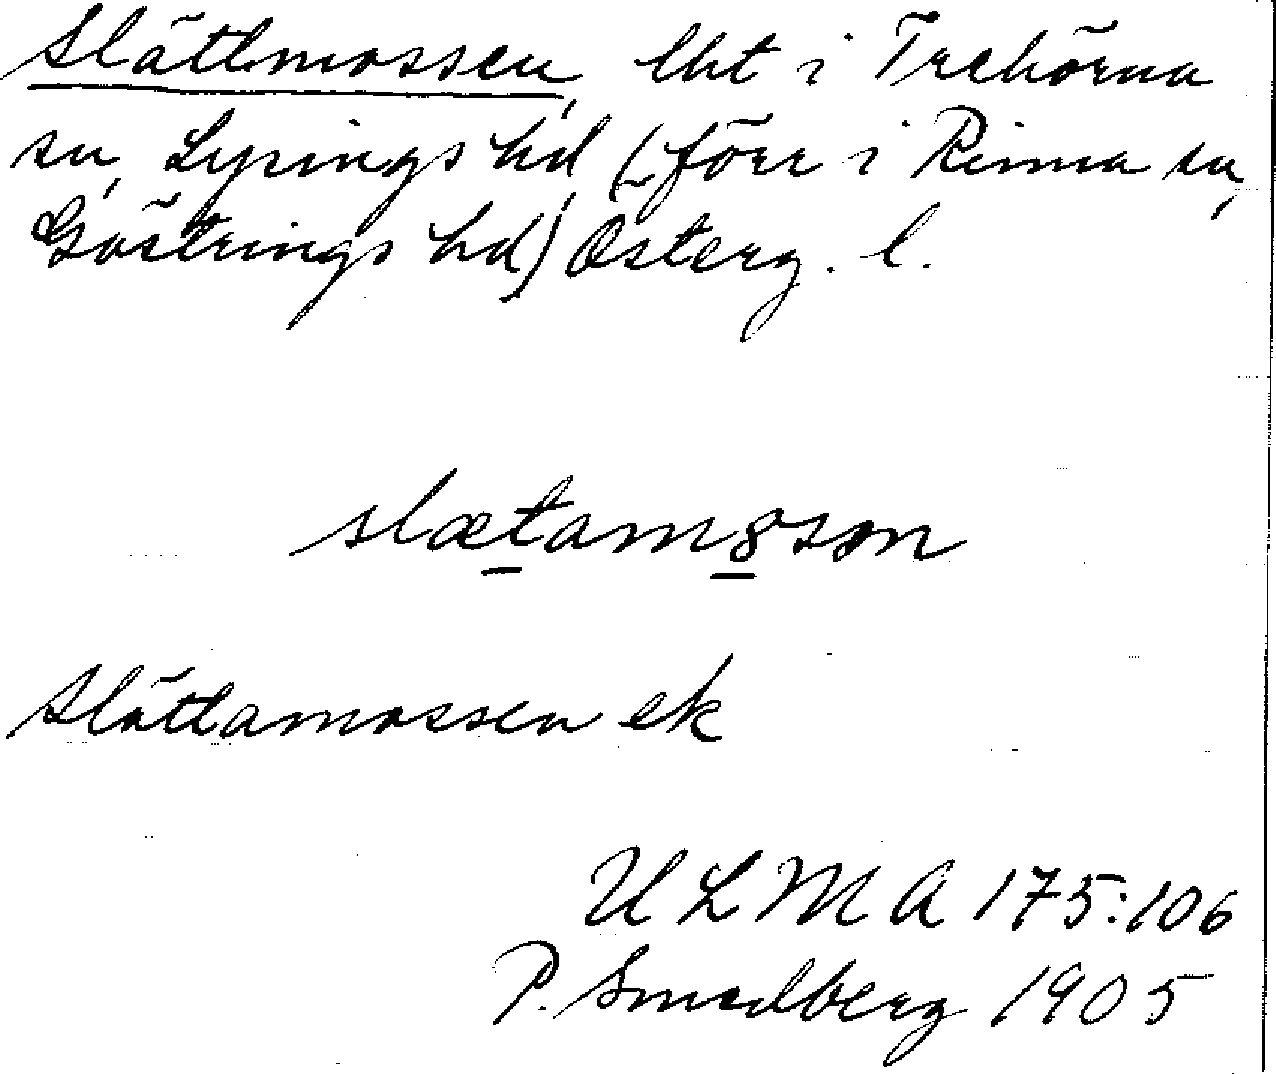 Slättmossen, lht i Trehörna
sn, Lysings hd (förr i Rinna sn,
Göstrings hd) Österg. l.
slætamȣsən
Slättamossen ek
ULMA 175:106
P. Smedberg 1905